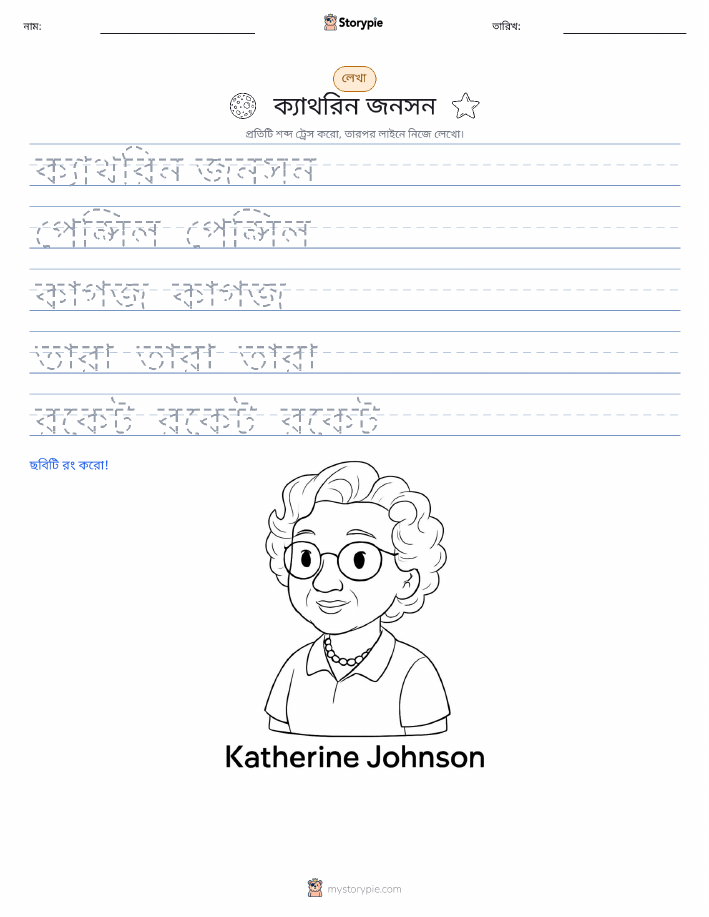 নাম:
Storypie
তারিখ:
লেখা
ক্যাথরিন জনসন
প্রতিটি শব্দ ট্রেস করো, তারপর লাইনে নিজে লেখো।
ক্যাথরিন জনসন
পেন্সিল পেন্সিল
কাগজ কাগজ
তারা তারা তারা
রকেট রকেট রকেট
ছবিটি রং করো!
Katherine Johnson
mystorypie.com